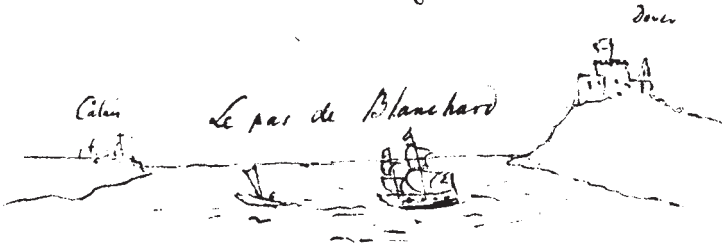 Dover
Calais
Le pas de Blanchard